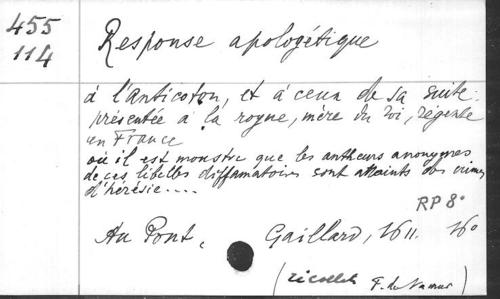 455
114
Response apologétique
à l'anticoton, et à ceux de sa suite.
présentée à la royne, mère du roi, régente
en France
où il est monstré que les autheurs anonymes
de ces libelles diffamatoires sont atteints des crimes
d'hérésie....
RP 8°
Au Pont, Gaillard, 1611. 16°
(Récollets F. de Namur)